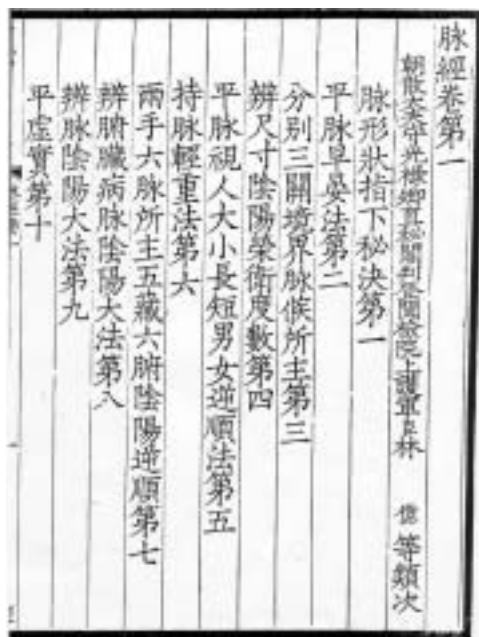 脉經卷第一
朝散大夫守光祿卿直秘閣判登聞檢院上護軍臣林 億等類次
脉形狀指下秘決第一
平脉早晏法第二
分別三關境界脉候所主第三
辨尺寸陰陽榮衛度數第四
平脉視人大小長短男女逆順法第五
持脉輕重法第六
兩手六脉所主五藏六腑陰陽逆順第七
辨腑臟病脉陰陽大法第八
辨脉陰陽大法第九
平虛實第十